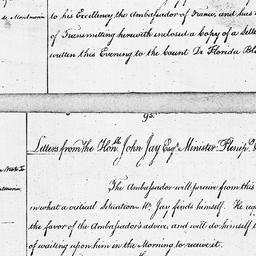 to his Excellency the Ambassador of France, and has
de Montmorin
of Transmitting herewith enclosed a Copy of a Lette
written this Evening to the Count De Florida Bla
95.
Letters from the Honble John Jay Esqr Minister Plenipo
The Ambassador will perceive from this
in what a critical Situation Mr. Jay finds himself. He re
the favor of the Ambassadors advice, and will do himself t
of waiting upon him in the Morning to receive it.